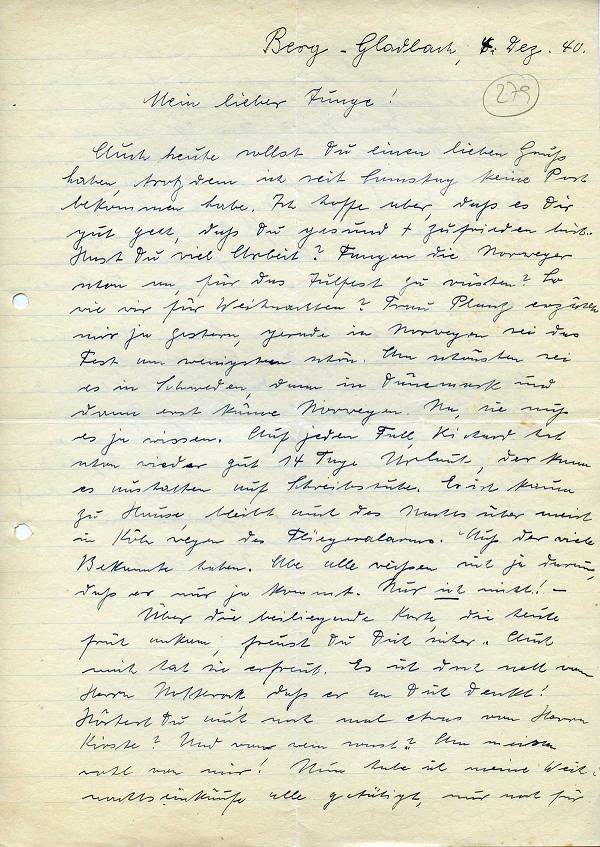 Berg.-Gladbach, 4. Dez. 40.
279
Mein lieber Junge!
Auch heute sollst Du einen lieben Gruß
haben, trotzdem ich seit Samstag keine Post
bekommen habe. Ich hoffe aber, daß es Dir
gut geht, daß Du gesund + zufrieden bist.
Hast Du viel Arbeit? Fangen die Norweger
schon an, für das Julfest zu rüsten? So
wie wir für Weihnachten? Frau erzählte
mir ja gestern, gerade in Norwegen sei das
Fest am wenigsten schön. Am schönsten sei
es in Schweden, dann in Dänemark und
dann erst käme Norwegen. Na, sie muß
es ja wissen. Auf jeden Fall, Richard hat
schon wieder gut 14 Tage Urlaub, der kann
es aushalten auf Schreibstube. Er ist kaum
zu Hause, bleibt auch des Nachts über meist
in Köln wegen des Fliegeralarms. Auch der viele
Bekannte haben. Alle reißen sich ja darum,
daß er nur ja kommt. Nur ich nicht! –
Über die beiliegende Karte, die heute
früh ankam, freust Du Dich sicher. Auch
mich hat sie erfreut. Es ist doch nett von
Herrn daß er an Dich denkt!
Hörtest Du auch noch mal etwas von Herrn
Kirste? Und von wem sonst? Am meisten
wohl von mir! Nun habe ich meine Weih-
nachtseinkäufe alle getätigt, nur noch für